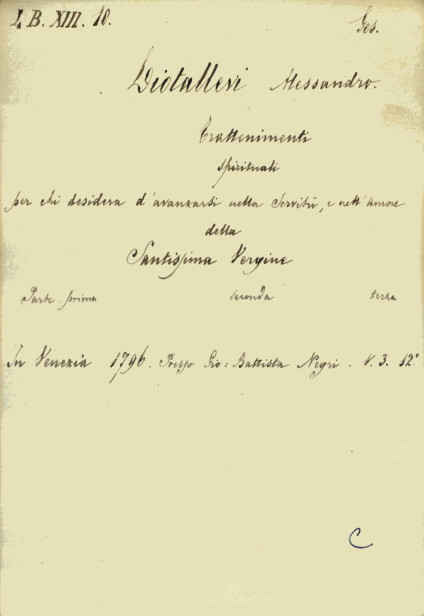 I. B. XIII. 10. Ges.
Diotallevi Alessandro.
Trattenimenti
spirituali
per chi desidera d'avanzarsi nella Servitù, e nell'Amore
della
Santissima Vergine
Parte prima seconda terza
In Venezia 1796. Presso Gio: Battista Negri. V. 3. 12°
C